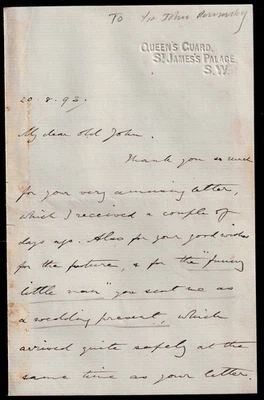 To Sir John
QUEEN'S GUARD,
ST JAMES'S PALACE,
S.W.
20.8.93.
My dear old John.
Thank you so much
for your very amusing letter,
which I received a couple of
days ago. Also for your good wishes
for the future, & for the "funny
little man" you sent me as
a wedding present, which
arrived quite safely at the
same time as your letter.